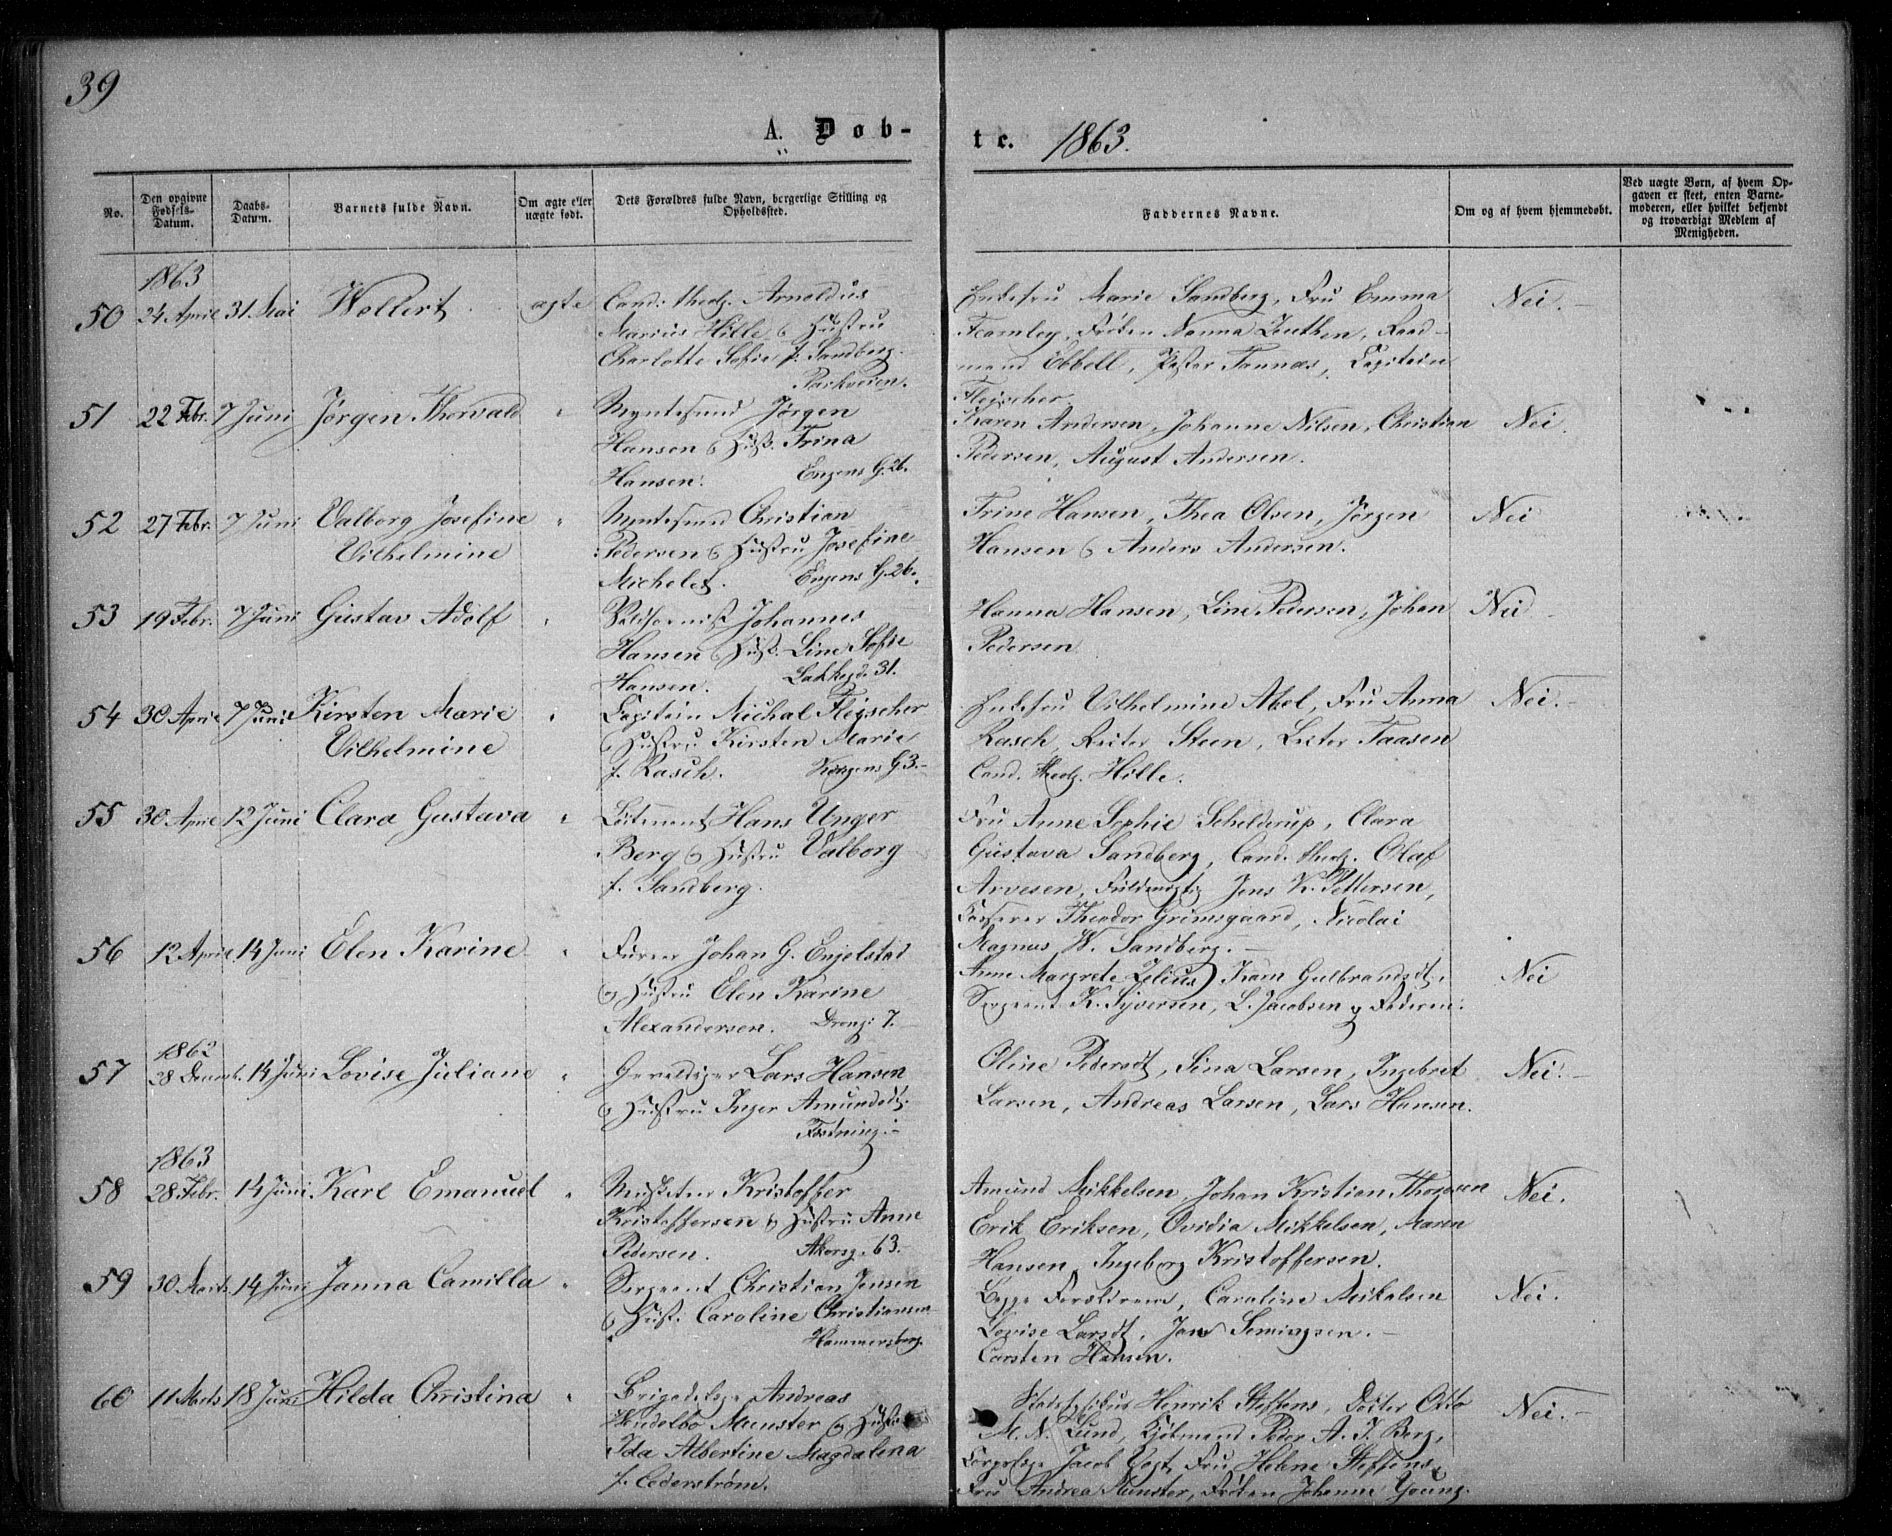 39
A. Døb-
te. 1863.
No.
Den opgivne Fødsels-Datum.
Daabs-Datum.
Barnets fulde Navn.
Om ægte eller uægte født.
Dets Forældres fulde Navn, borgerlige Stilling og Opholdssted.
Faddernes Navne.
Om og af hvem hjemmedøbt.
Ved uægte Børn, af hvem Opgaven er skeet, enten Barnemoderen, eller hvilket bekjendt og troværdigt Medlem af Menigheden.
1863
50 24 April 31 Mai Wollert ægte Cand: theol. Arnoldus
Marius Hille & Hustru
Charlotte Sofie f. Sandberg.
Parkveien.
Enkefru Marie Sandberg, Fru Emma
Fearnley, Frøken Nanna Zeuthen, Raad-
mand Ebbell, Pastor Tannæs, Capitein
Fleischer.
Nei.
51 22 Febr. 7 Juni Jørgen Thorvald " Myntesmed Jørgen
Hansen & Hust. Trina
Hansen. Engens G. 26.
Karen Andersen, Johanne Nilsen, Christian
Pedersen, August Andersen.
Nei
52 27 Febr. 7 Juni Valborg Josefine " Myntesmed Christian
Vilhelmine
Pedersen & Hustru Josefine
Michelet. Engens G. 26.
Trine Hansen, Thea Olsen, Jørgen
Hansen & Anders Andersen.
Nei
53 19 Febr. 7 Juni Gustav Adolf " Johannes
Hansen & Hust. Line Sofie
Hansen. Lakkegd. 31.
Hanna Hansen, Line Pedersen, Johan
Pedersen
Nei
54 30 April 7 Juni Kirsten Marie " Capitein Michal Fleischer
Vilhelmine
& Hustru Kirsten Marie
f. Rasch. Kongens G 3.
Enkefru Vilhelmine Abel, Fru Anna
Rasch, Steen, Taasen
Cand. theol. Hille.
Nei.
55 30 April 12 Juni Clara Gustava " Løitenant Hans Unger
Berg & Hustru Valborg
f. Sandberg.
Fru Anne Sophie Schelderup, Clara
Gustava Sandberg, Cand. theol. Olaf
Arvesen, Fuldmægtig Jens K. Pettersen,
Kasserer Theodor Grimsgaard, Nicolai
Magnus W. Sandberg.
56 12 April 14 Juni Elen Karine " Furer Johan G. Engelstad
& Hustru Elen Karine
Alexandersen. Drong: 7.
Anne Margrete Zelius, Karn Gulbrandsdt.,
Sergeant K. Syversen, L. Jacobsen & Faderen.
Nei
1862
57 28 Decemb. 14 Juni Lovise Juliane " Geveldiger Lars Hansen
& Hustru Inger Amundsdt.
Fæstning.
Oline Pedersdt, Sina Larsen, Ingebret
Larsen, Andreas Larsen, Lars Hansen.
Nei.
1863
58 28 Febr. 14 Juni Karl Emanuel " Musketeer Kristoffer
Kristoffersen & Hustru Anne
Pedersen. Akersg. 63.
Amund Mikkelsen, Johan Kristian Thoresen
Erik Eriksen, Ovidia Mikkelsen, Maren
Hansen, Ingeborg Kristoffersen.
Nei.
59 30 Marts 14 Juni Janna Camilla " Sergeant Christian Jensen
& Hust. Caroline Christiansen
Hammersborg.
Begge Forældrene, Caroline Mikalsen
Lovise Larsdt,
Carsten Hansen.
Nei.
60 11 Marts 18 Juni Hilda Christina " Brigadelæge Andreas
Munster & Hustru
Ida Albertine Magdalena
f. Cederstrøm.
Stadsfysikus Henrik Steffens, Doktor Otto
M. N. Lund, Kjøbmand Peder A. J. Berg,
Korpslæge Jacob Vogt, Fru Helene Steffens,
Fru Andrea Munster, Frøken Johanne Young.
Nei.